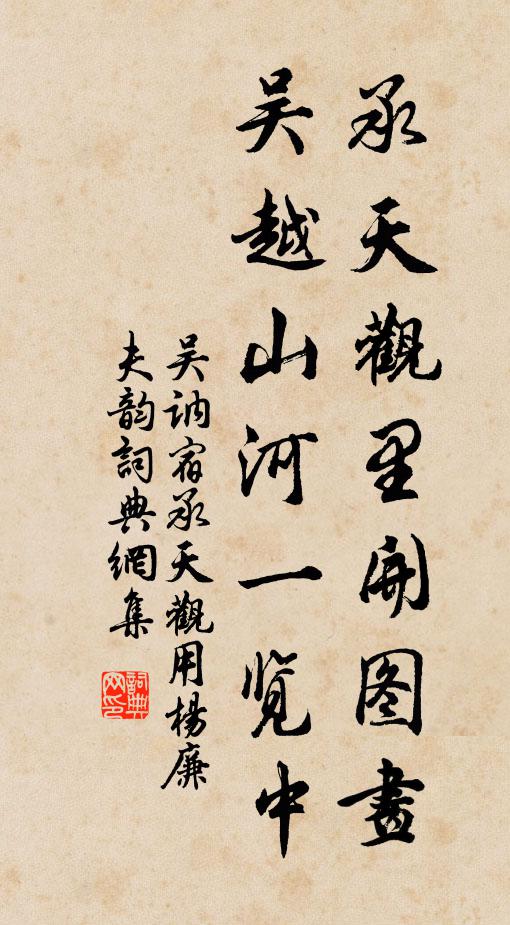 承天觀里開图畫
吴越山河一览中
吴訥宿承天觀用楊廉
夫韵詞典網集
詞典
网印